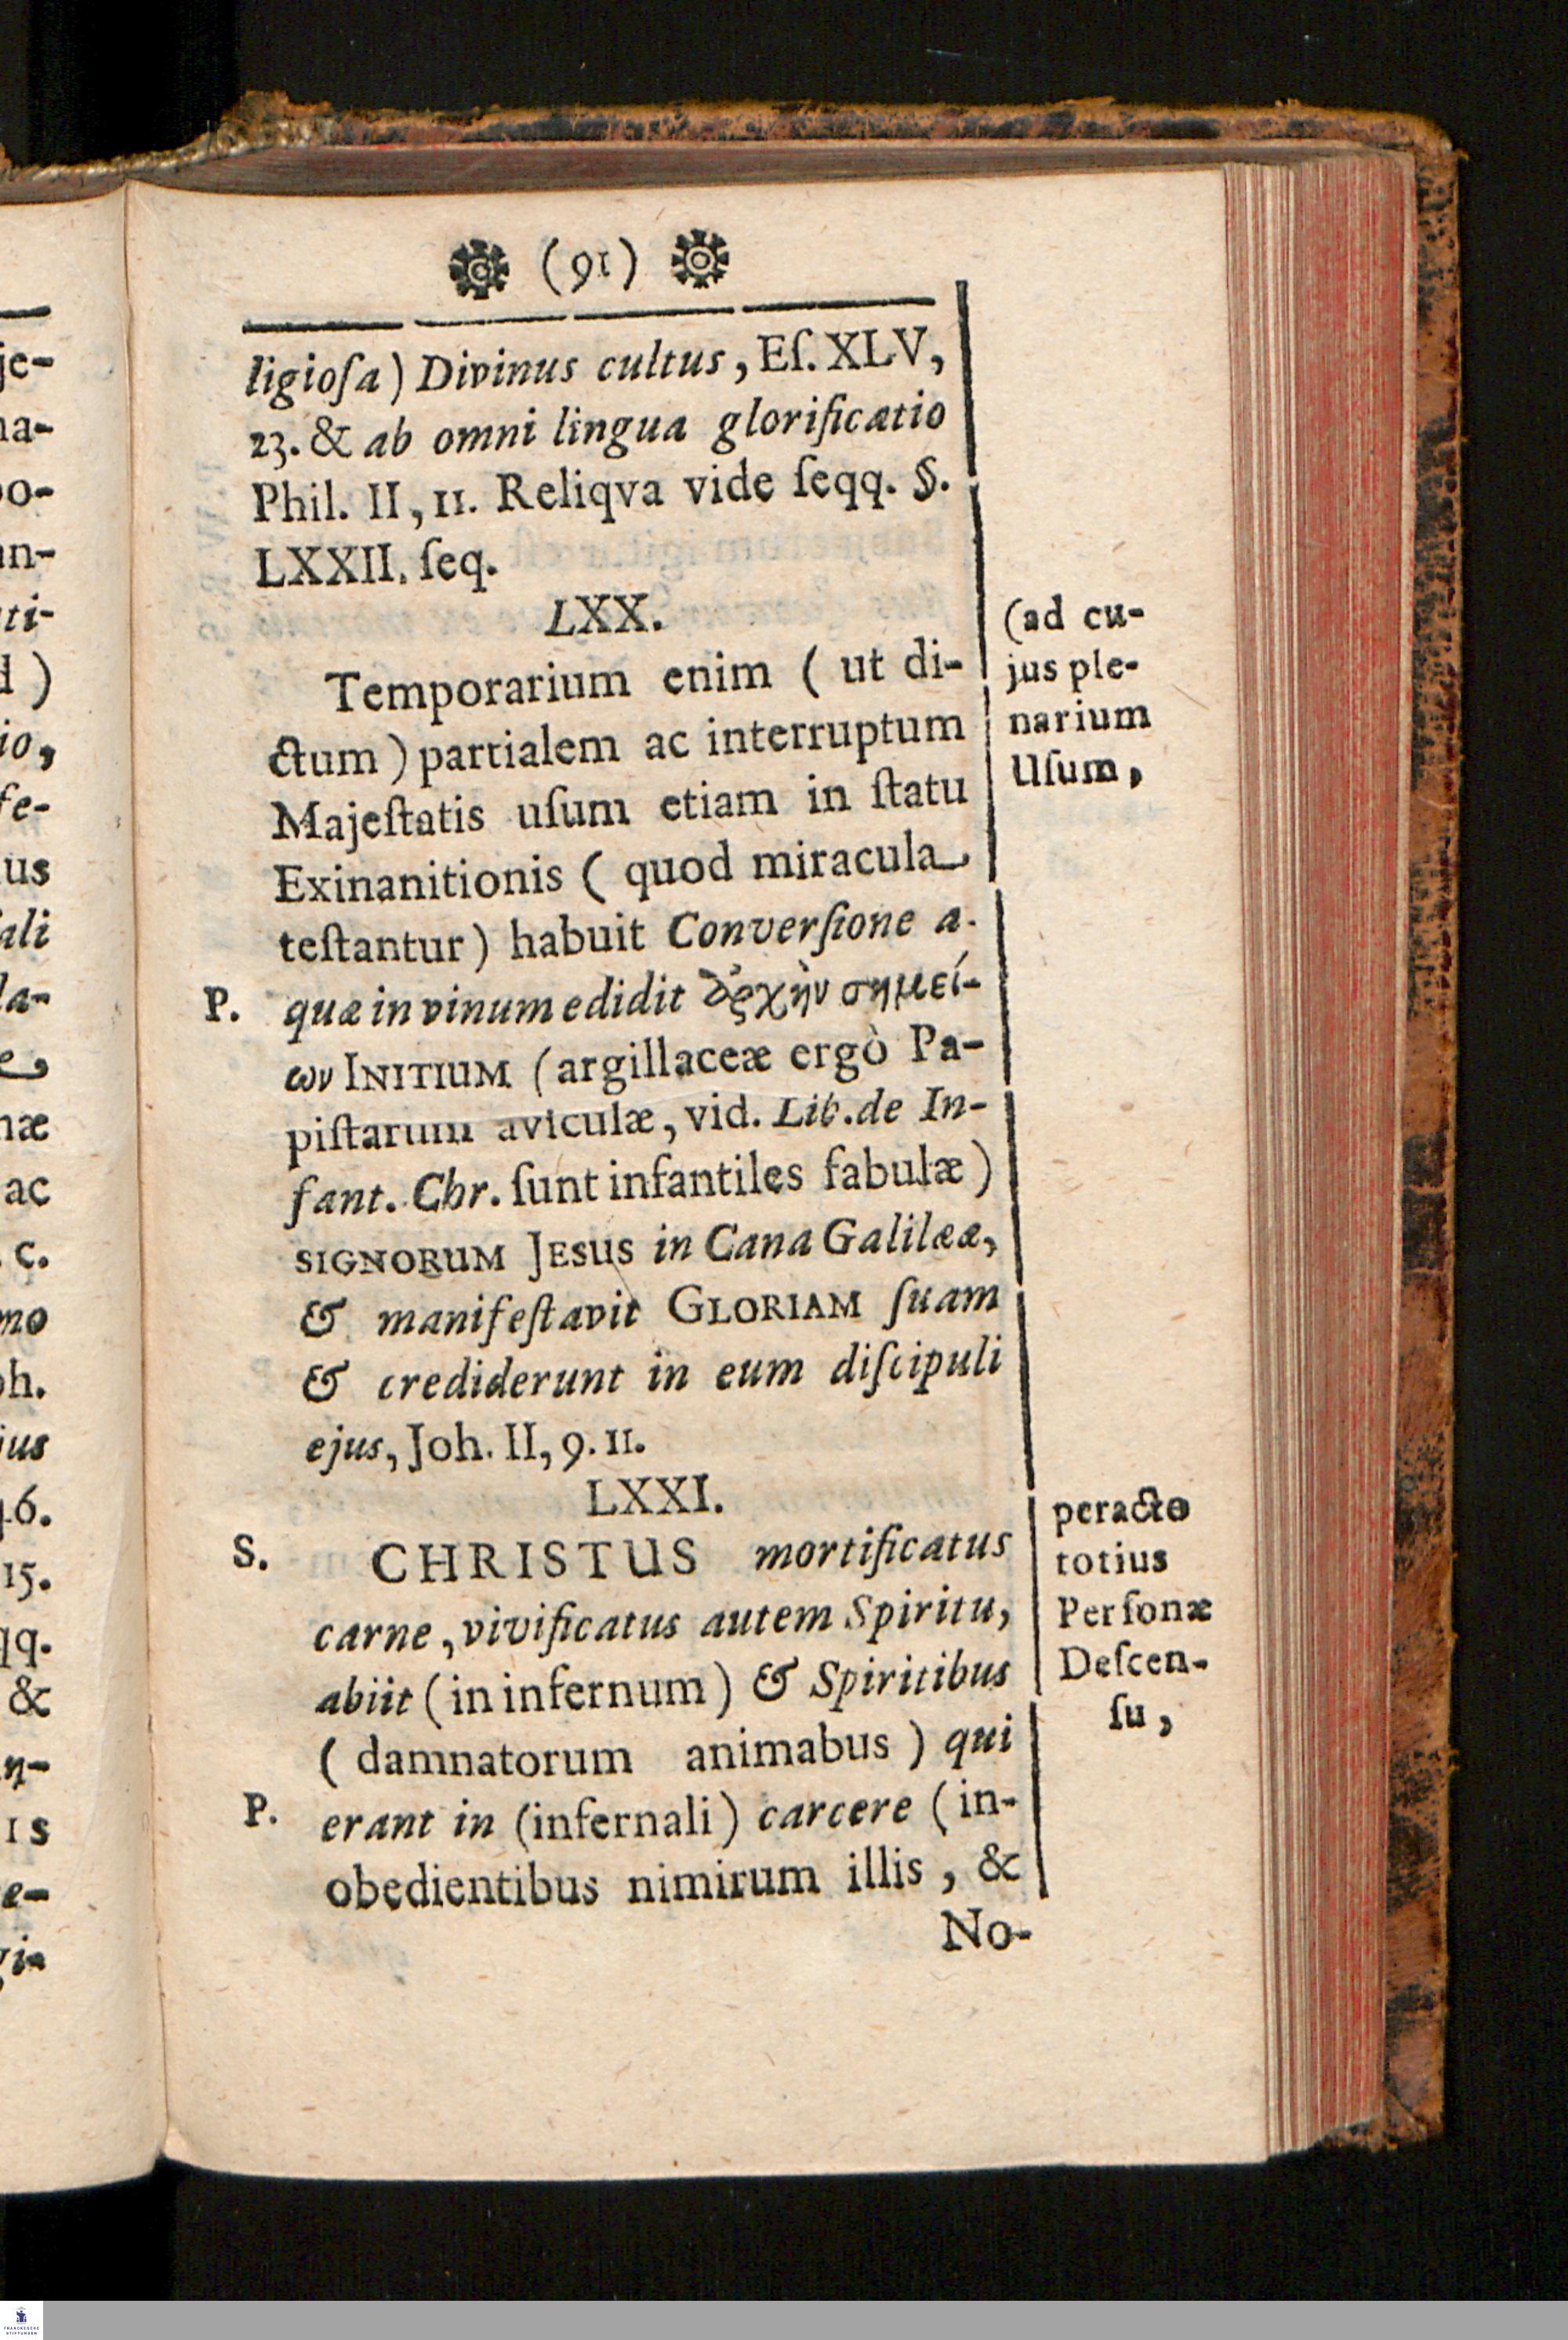 (91)
ligioſa) Divinus cultus, Eſ. XLV,
23. & ab omni lingua glorificatio
Phil. II, 11. Reliqva vide ſeqq. §.
LXXII. ſeq.
LXX.
Temporarium enim (ut di-
ctum) partialem ac interruptum
Majeſtatis uſum etiam in ſtatu
Exinanitionis (quod miracula
teſtantur) habuit Converſione a-
P. quæ in vinum edidit ἀρχὴν σημεί-
ων INITIUM (argillaceæ ergò Pa-
piſtarum aviculæ, vid. Lib. de In-
fant. Chr. ſunt infantiles fabulæ)
SIGNORUM JESUS in Cana Galilææ,
& manifeſtavit GLORIAM ſuam
& crediderunt in eum diſcipuli
ejus, Joh. II, 9. 11.
LXXI.
S. CHRISTUS mortificatus
carne, vivificatus autem Spiritu,
abiit (in infernum) & Spiritibus
(damnatorum animabus) qui
P. erant in (infernali) carcere (in-
obedientibus nimirum illis, &
No-
(ad cu-
jus ple-
narium
Uſum,
peracto
totius
Perſonæ
Deſcen-
ſu,
je-
na-
po-
an-
ti-
d)
io,
fe-
us
ali
la-
næ
ac
c.
mo
oh.
jus
46.
15.
qq.
&
η-
IS
e-
gi-
FRANCKESCHE
STIFTUNGEN